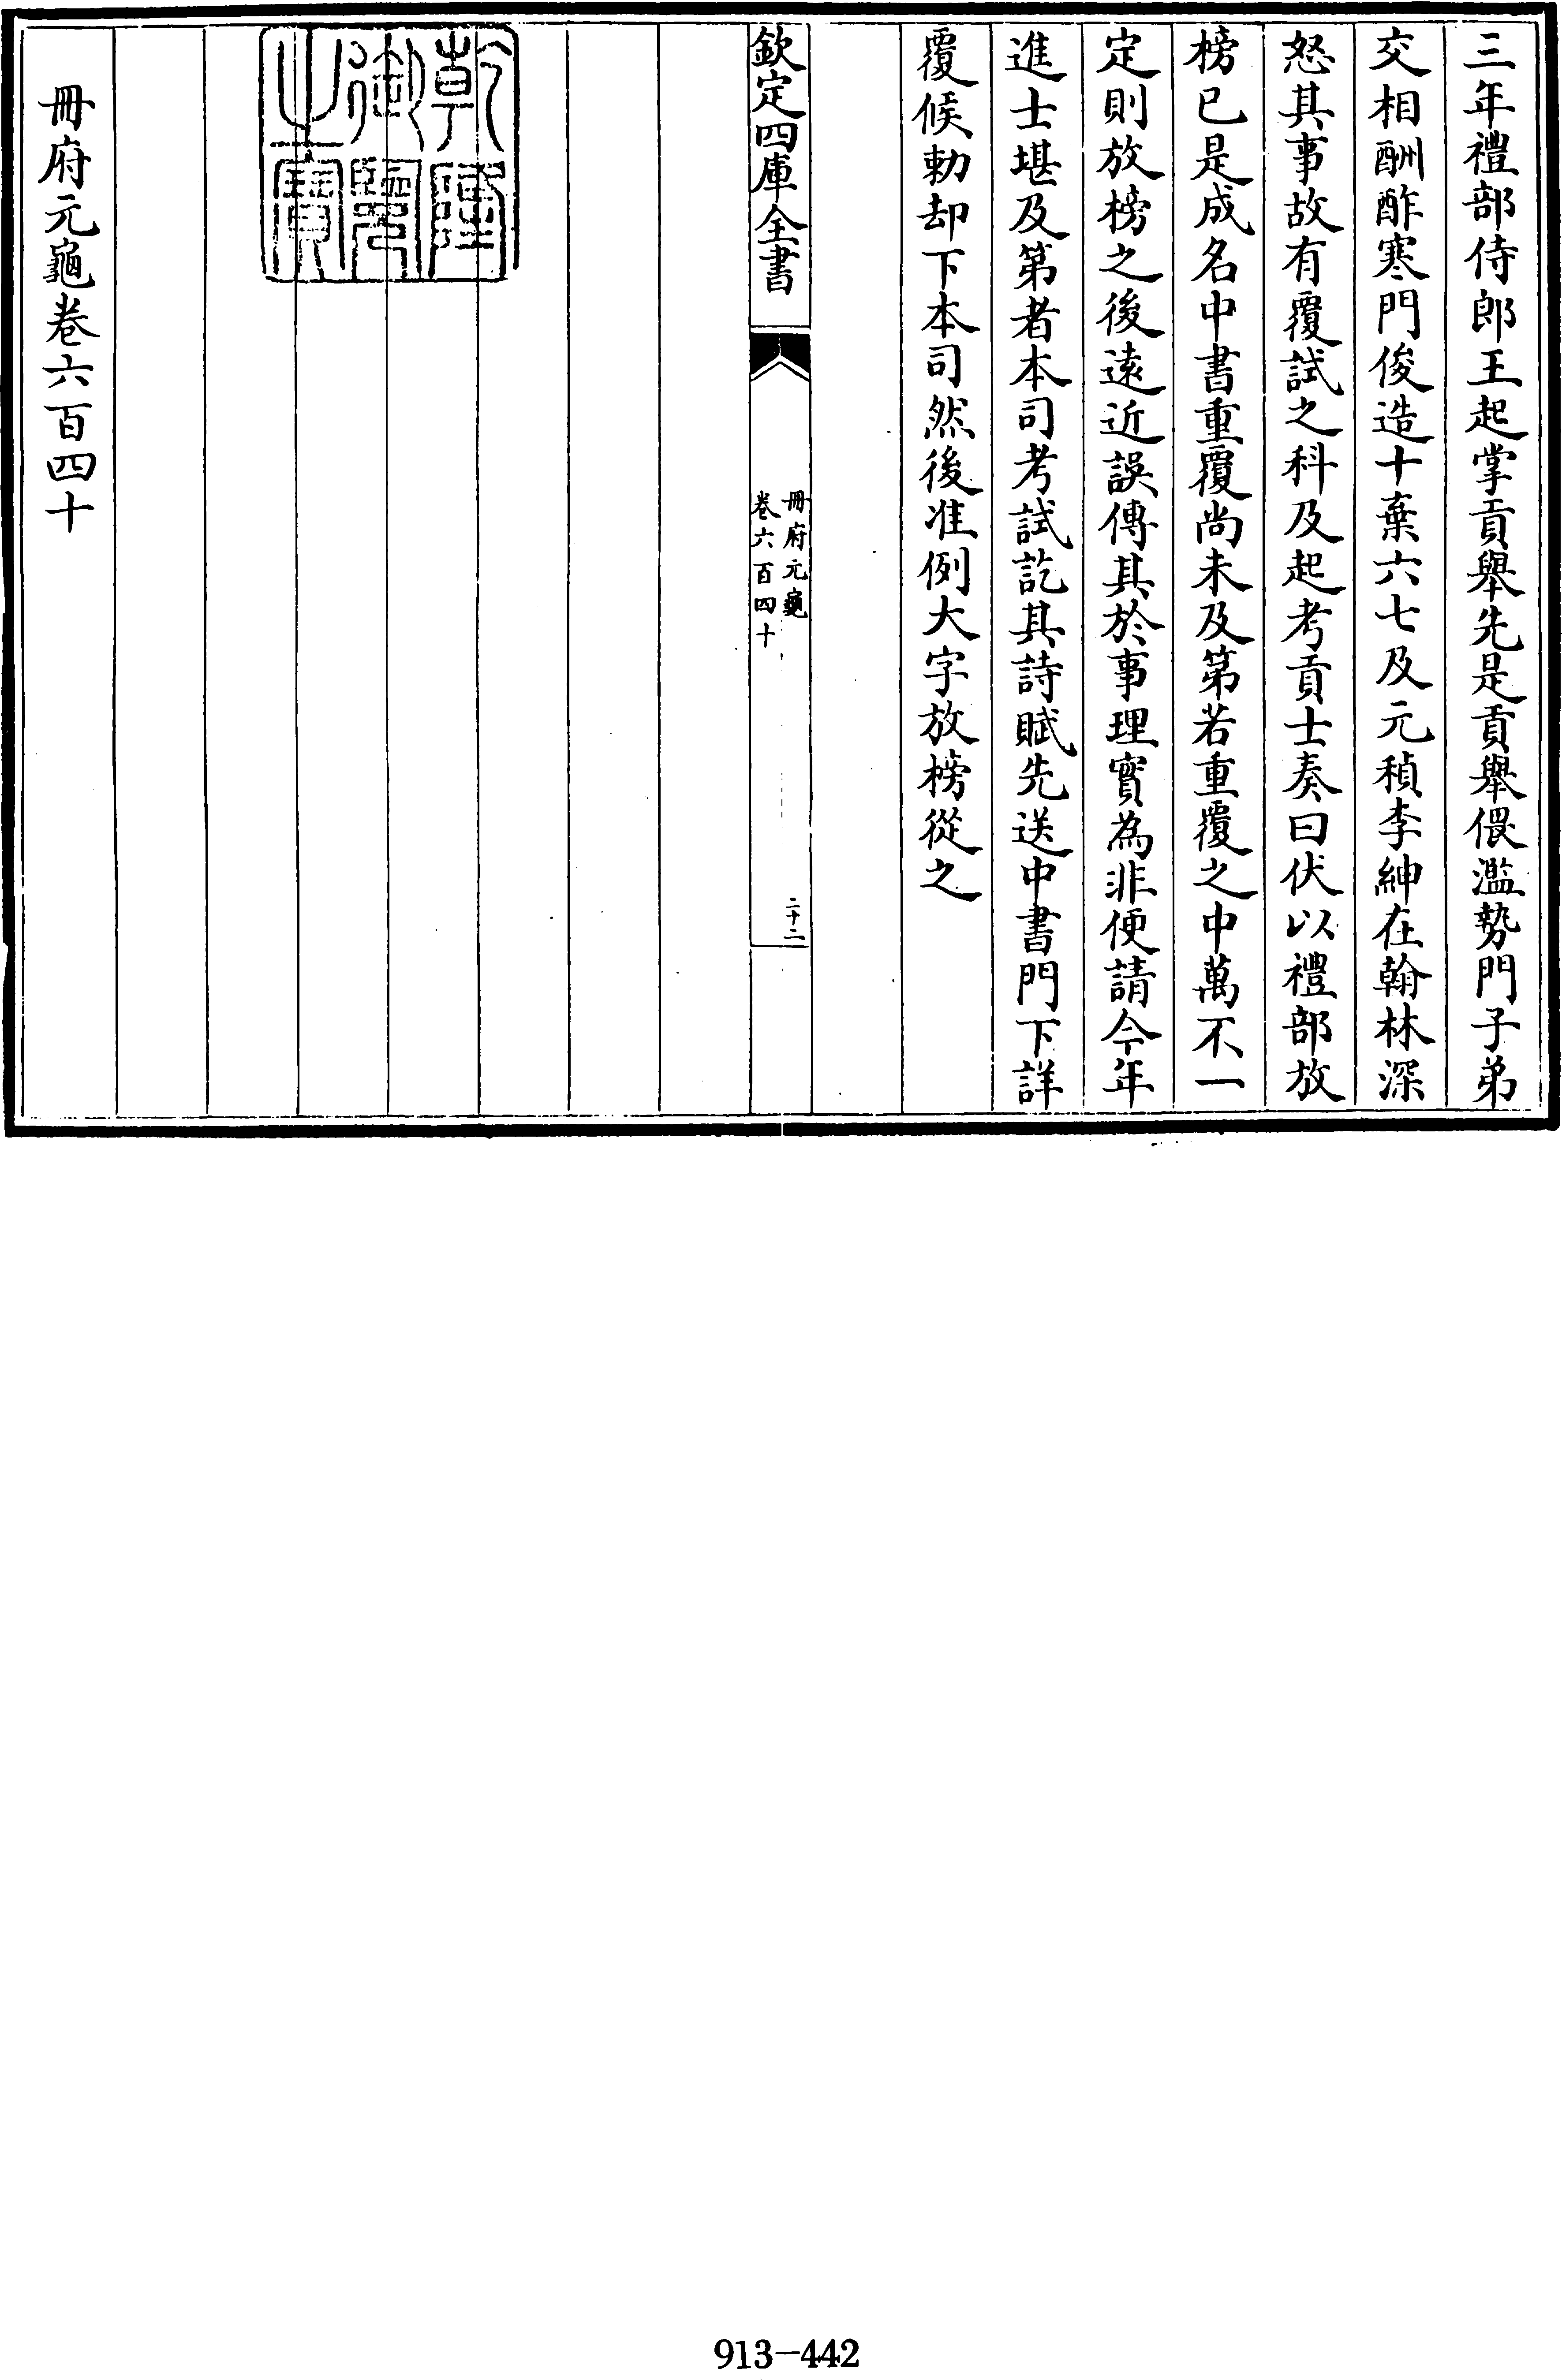 三年禮部侍郎王起掌貢舉先是貢舉偎濫勢門子弟
交相酬酢寒門俊造十棄六七及元稹李紳在翰林深
怒其事故有覆試之科及起考貢士奏曰伏以禮部放
榜已是成名中書重覆尚未及第若重覆之中萬不一
定則放榜之後遠近誤傳其於事理實為非便請今年
進士堪及第者本司考試訖其詩賦先送中書門下詳
覆候勅却下本司然後准例大字放榜從之
欽定四庫全書
冊府元龜
卷六百四十
二十二
乾隆
御覽
之寶
冊府元龜卷六百四十
913-442